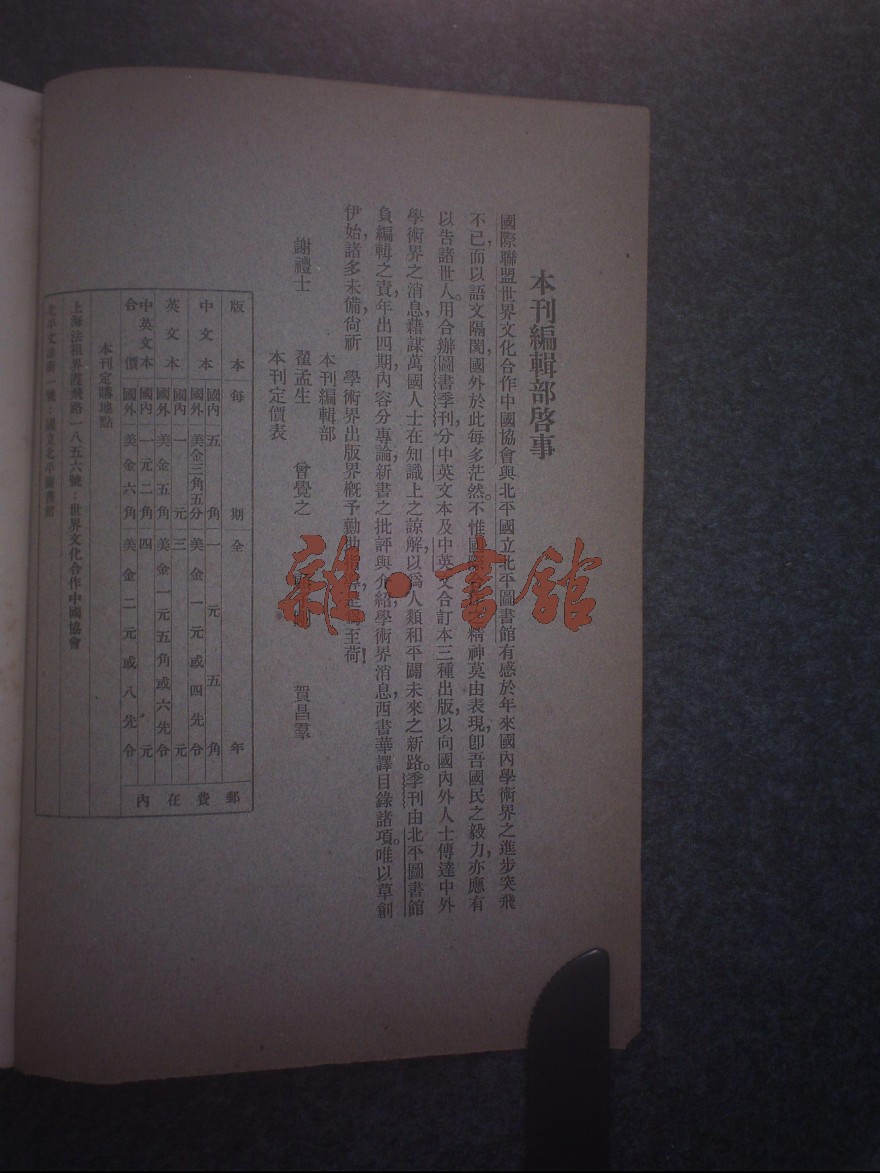 本刊編輯部啓事
國際聯盟世界文化合作中國協會與北平國立北平圖書館有感於年來國內學術界之進步突飛
不已,而以語文隔閡,國外於此每多茫然。不惟國精神莫由表現,卽吾國民之毅力亦應有
以告諸世人。用合辦圖書季刊分中英文本及中英文合訂本三種出版,以向國內外人士傳達中外
學術界之消息,藉謀萬國人士在知識上之諒解,以爲人類和平闢未來之新路。季刊由北平圖書館
負編輯之責,年出四期,內容分專論,新書之批評與介紹,學術界消息,西書華譯目錄諸項。唯以草創
伊始,諸多未備,尙祈 學術界出版界概予至荷!
本刊編輯部
謝禮士 翟孟生 曾覺之 賀昌羣
本刊定價表
版本 每期 全年 郵費在內
中文本 國內 五角 一元五角
國外 美金三角五分 美金一元或四先令
英文本 國內 一元 三元
國外 美金五角 美金一元五角或六先令
中英文本合價 國內 一元二角 四元
國外 美金六角 美金二元或八先令
本刊定購地點
上海法租界霞飛路一八五六號:世界文化合作中國協會
北平文津街一號:國立北平圖書館
雜·書館